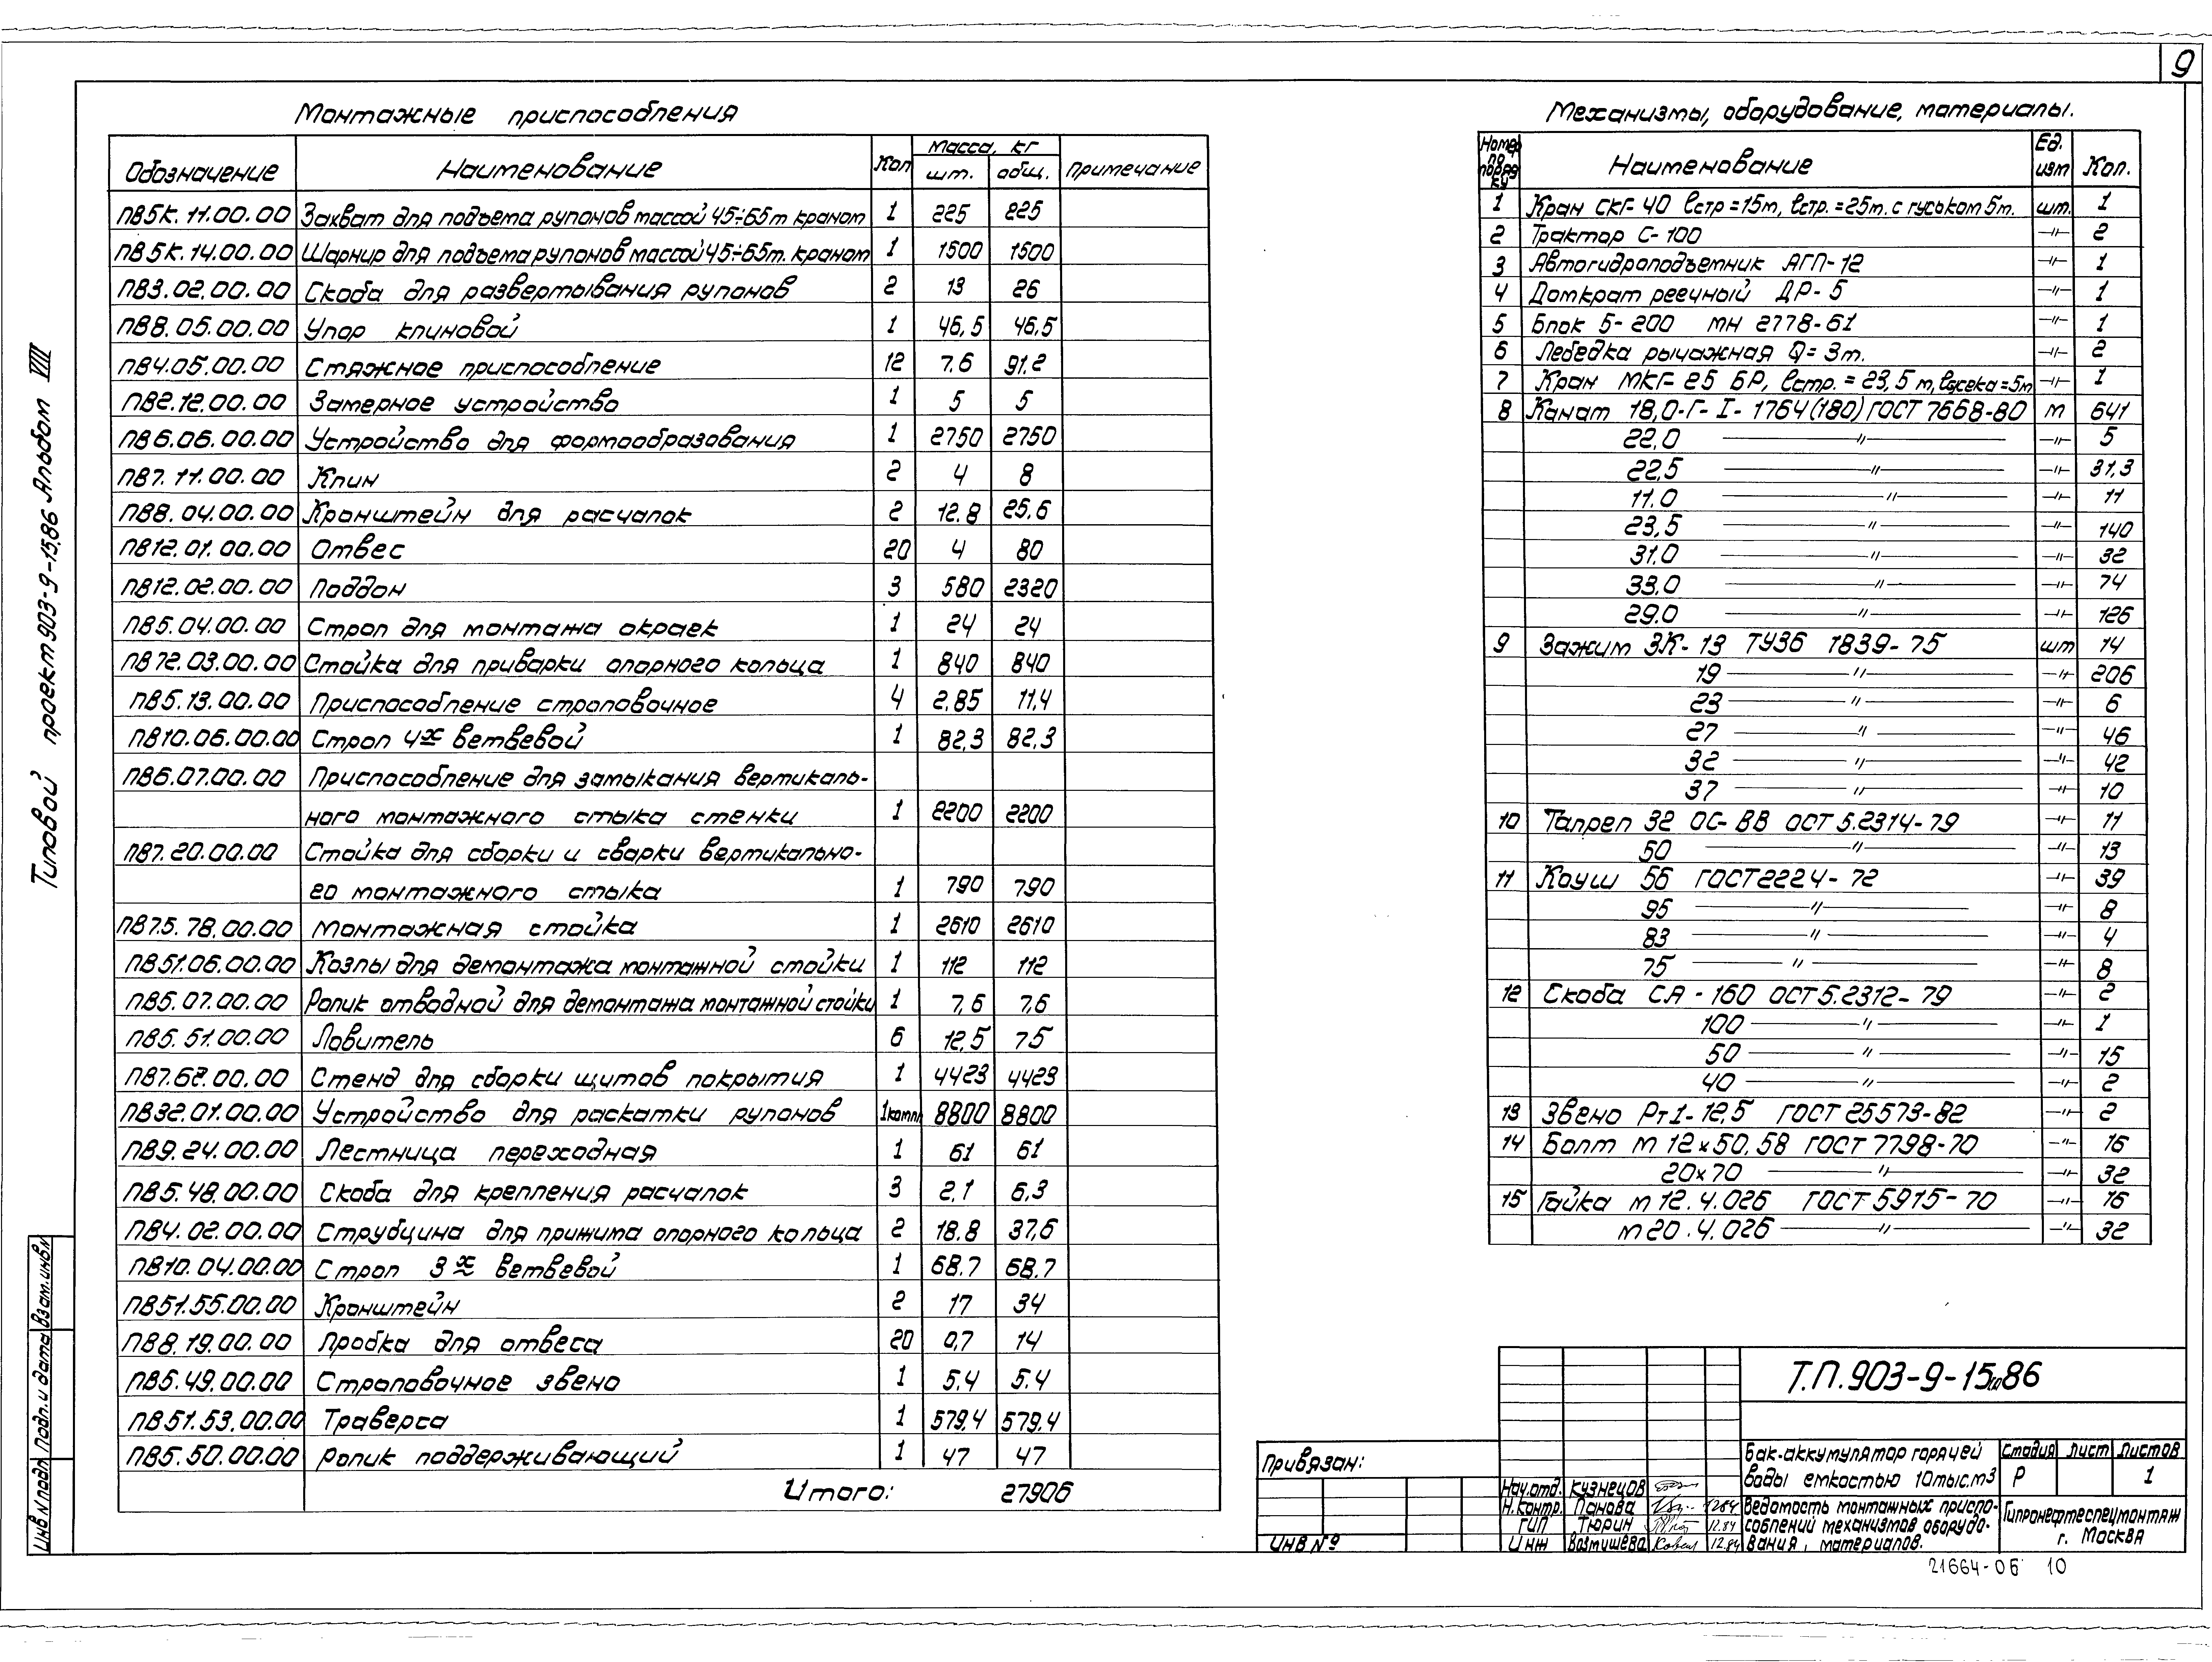 9
Типовой проект 903-9-15.86 Альбом VIII
Монтажные приспособления
Обозначение Наименование Кол Масса, кг Примечание
шт. общ.
ПВ5К.11.00.00 Захват для подъема рулонов массой 45÷65т краном 1 225 225
ПВ5К.14.00.00 Шарнир для подъема рулонов массой 45÷65т. краном 1 1500 1500
ПВ3.02.00.00 Скоба для развертывания рулонов 2 13 26
ПВ8.05.00.00 Упор клиновой 1 46,5 46,5
ПВ4.05.00.00 Стяжное приспособление 12 7.6 91.2
ПВ2.12.00.00 Замерное устройство 1 5 5
ПВ6.06.00.00 Устройство для формообразования 1 2750 2750
ПВ7.11.00.00 Клин 2 4 8
ПВ8.04.00.00 Кронштейн для расчалок 2 12.8 25.6
ПВ12.01.00.00 Отвес 20 4 80
ПВ12.02.00.00 Поддон 3 580 2320
ПВ5.04.00.00 Строп для монтажа окраек 1 24 24
ПВ72.03.00.00 Стойка для приварки опорного кольца 1 840 840
ПВ5.13.00.00 Приспособление строповочное 4 2,85 11,4
ПВ10.06.00.00 Строп 4х ветвевой 1 82,3 82,3
ПВ6.07.00.00 Приспособление для замыкания вертикаль-
ного монтажного стыка стенки 1 2200 2200
ПВ7.20.00.00 Стойка для сборки и сварки вертикально-
го монтажного стыка 1 790 790
ПВ75.78.00.00 Монтажная стойка 1 2610 2610
ПВ51.06.00.00 Козлы для демонтажа монтажной стойки 1 112 112
ПВ5.07.00.00 Ролик отводной для демонтажа монтажной стойки 1 7,6 7,6
ПВ5.51.00.00 Ловитель 6 12,5 75
ПВ7.62.00.00 Стенд для сборки щитов покрытия 1 4423 4423
ПВ32.01.00.00 Устройство для раскатки рулонов 1компл 8800 8800
ПВ9.24.00.00 Лестница переходная 1 61 61
ПВ5.48.00.00 Скоба для крепления расчалок 3 2,1 6,3
ПВ4.02.00.00 Струбцина для прижима опорного кольца 2 18.8 37,6
ПВ10.04.00.00 Строп 3х ветвевой 1 68.7 68.7
ПВ51.55.00.00 Кронштейн 2 17 34
ПВ8.19.00.00 Пробка для отвеса 20 0,7 14
ПВ5.49.00.00 Строповочное звено 1 5.4 5.4
ПВ51.53.00.00 Траверса 1 579,4 579,4
ПВ5.50.00.00 Ролик поддерживающий 1 47 47
Итого: 27906
Механизмы, оборудование, материалы.
Номер по порядку Наименование Ед. изм Кол.
1 Кран СКГ-40 lстр=15м, lстр.=25м. с гуськом 5м. шт. 1
2 Трактор С-100 —"— 2
3 Автогидроподъемник АГП-12 —"— 1
4 Домкрат реечный ДР-5 —"— 1
5 Блок 5-200 МН 2778-61 —"— 1
6 Лебедка рычажная Q=3т. —"— 2
7 Кран МКГ-25 БР, lстр.=23,5м, lгуська=5м —"— 1
8 Канат 18,0-Г-I-1764(180) ГОСТ 7668-80 м 641
22,0 —"— —"— 5
22,5 —"— —"— 31,3
11.0 —"— —"— 11
23,5 —"— —"— 140
31.0 —"— —"— 32
33.0 —"— —"— 74
29.0 —"— —"— 126
9 Зажим ЗК-13 ТУ36 1839-75 шт 14
19 —"— —"— 206
23 —"— —"— 6
27 —"— —"— 46
32 —"— —"— 42
37 —"— —"— 10
10 Талреп 32 ОС-ВВ ОСТ 5.2314-79 —"— 11
50 —"— —"— 13
11 Коуш 56 ГОСТ 2224-72 —"— 39
95 —"— —"— 8
83 —"— —"— 4
75 —"— —"— 8
12 Скоба СА-160 ОСТ 5.2312-79 —"— 2
100 —"— —"— 1
50 —"— —"— 15
40 —"— —"— 2
13 Звено Рт1-12,5 ГОСТ 25573-82 —"— 2
14 Болт м12х50.58 ГОСТ 7798-70 —"— 16
20х70 —"— —"— 32
15 Гайка м12.4.026 ГОСТ 5915-70 —"— 16
м20.4.026 —"— —"— 32
Привязан:
ИНВ №
Нач.отд. Кузнецов
Н.контр. Панова 12.84
ГИП Тюрин 12.84
Инж Возмишева 12.84
Т.П.903-9-15.86
Бак-аккумулятор горячей
воды емкостью 10тыс.м3
Стадия Лист Листов
Р 1
Ведомость монтажных приспо-
соблений механизмов оборудо-
вания, материалов.
Гипронефтеспецмонтаж
г. Москва
21664-06 10
Инв N подл Подп. и дата Взам.инв.N